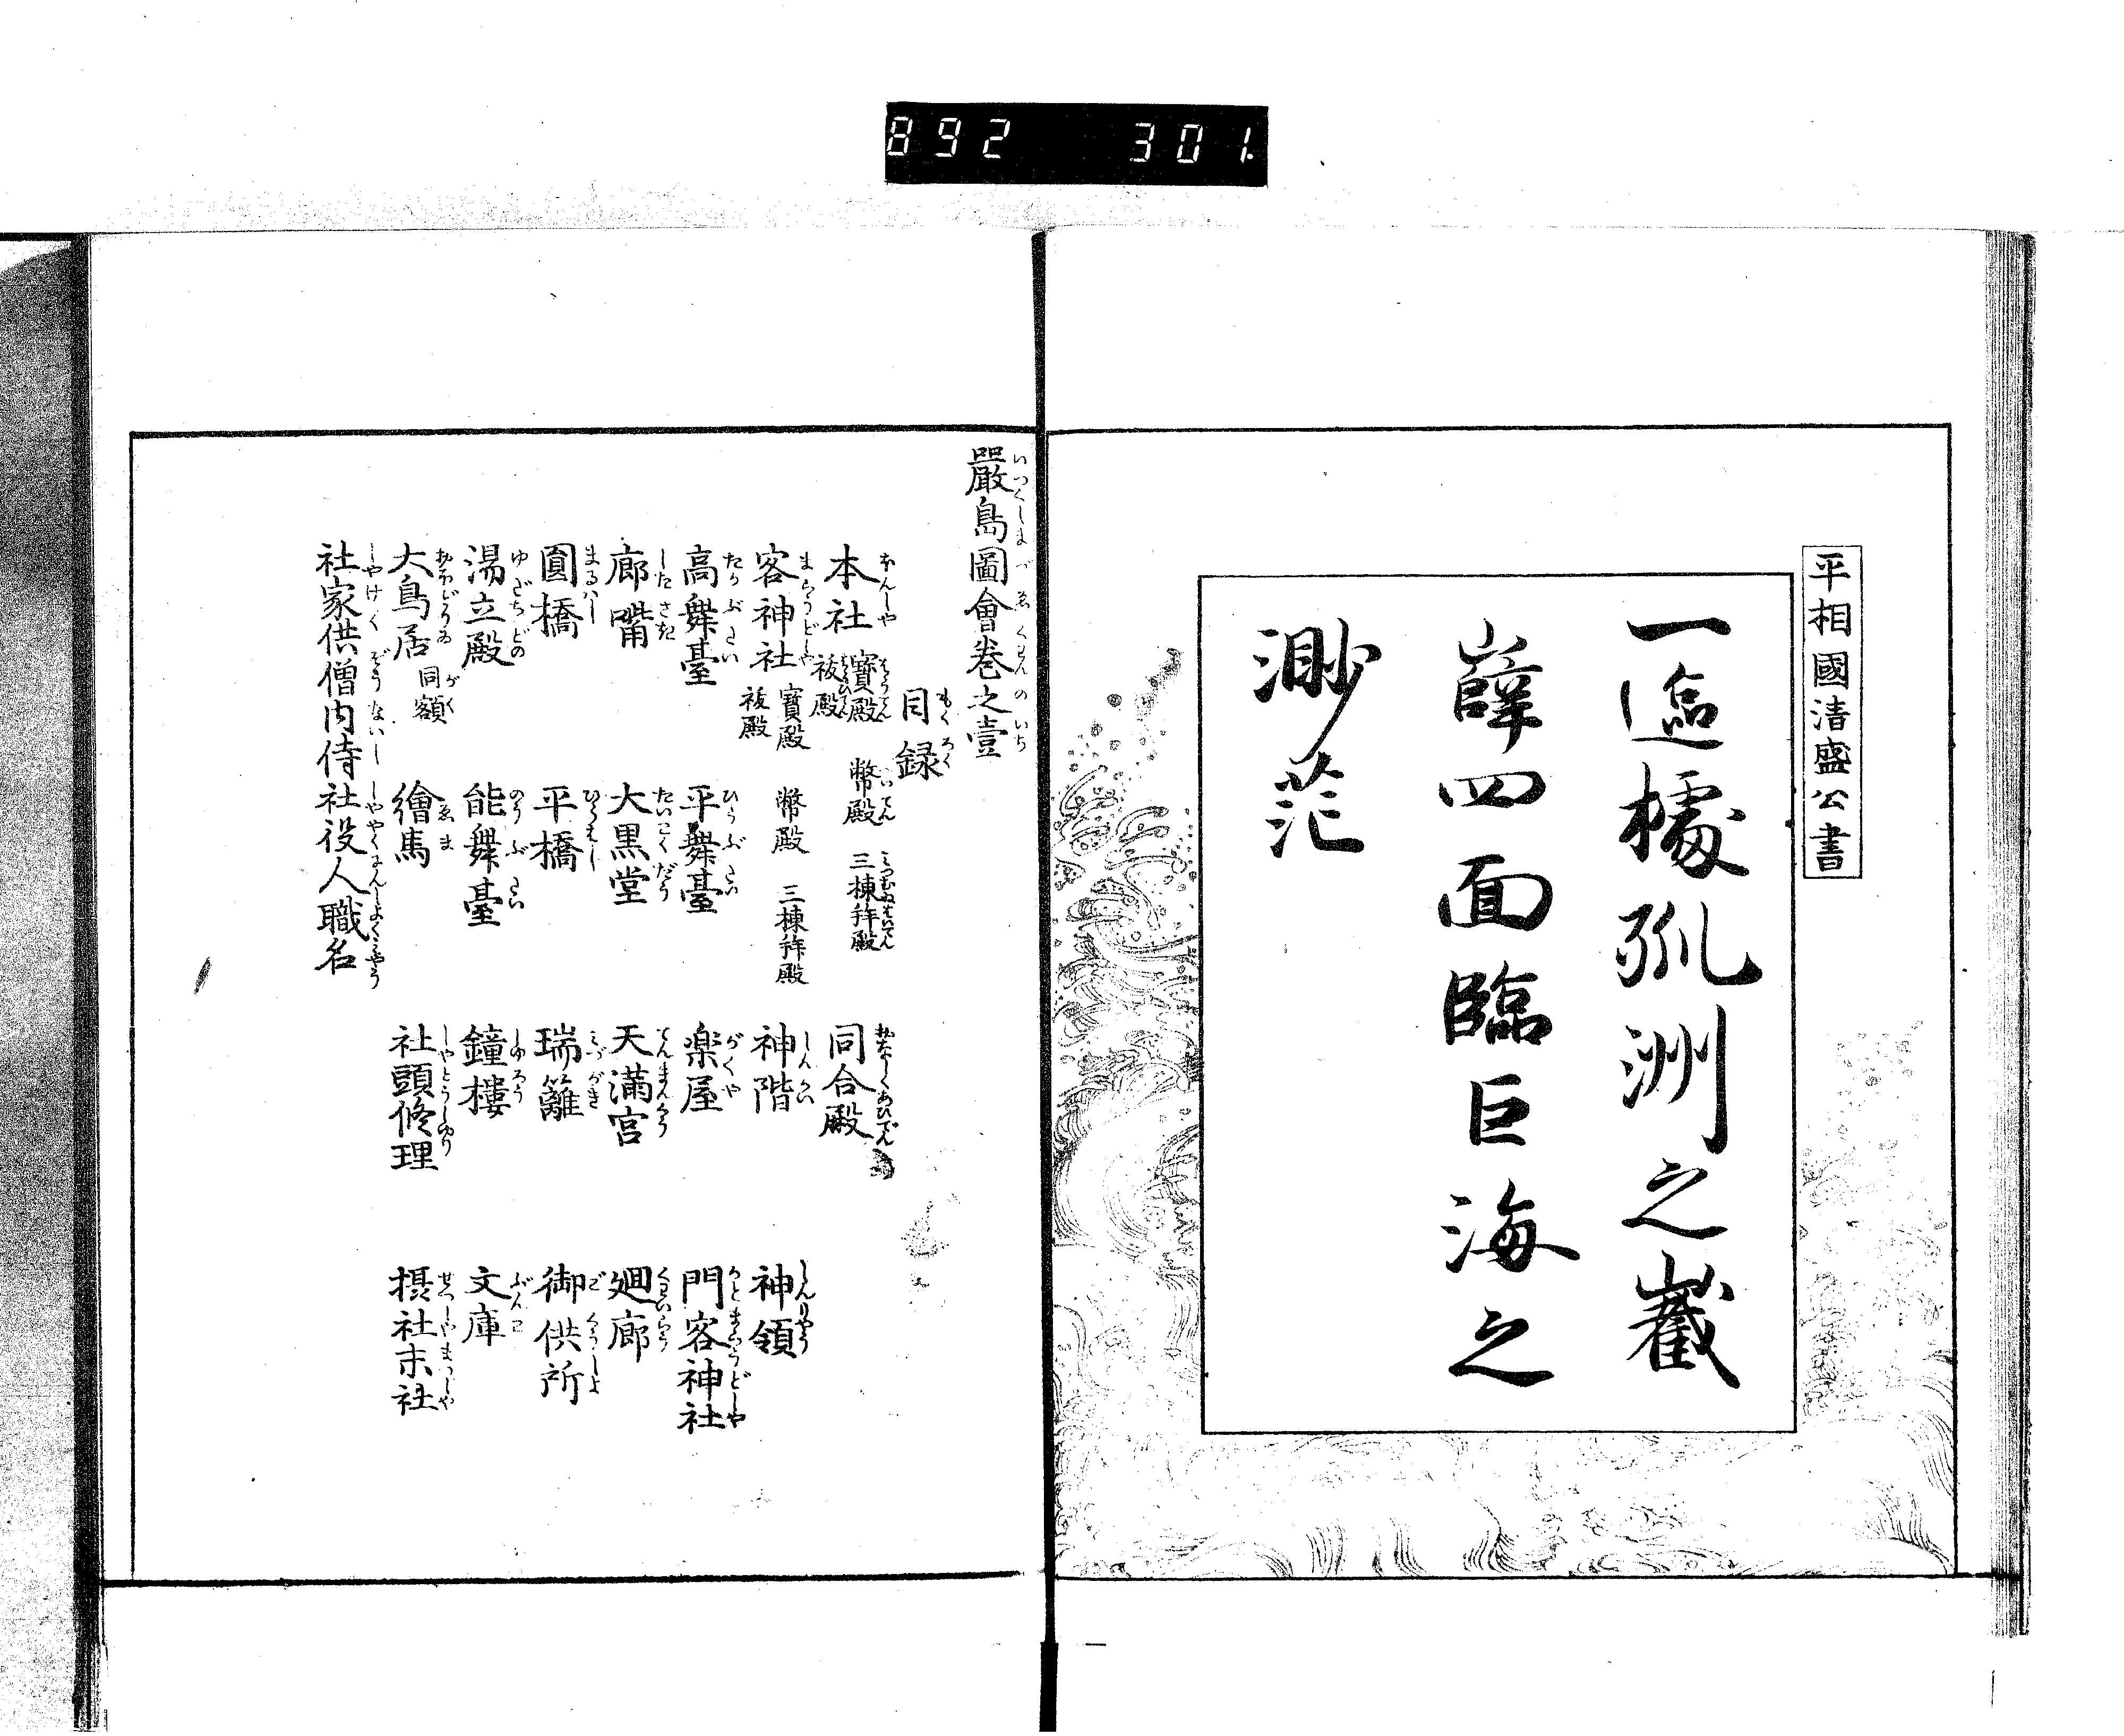 892 301
平相國清盛公書
一逾據孤洲之巀
嶭四面臨巨海之
渺茫
嚴島圖會卷之壹
目録
本社 寶殿 祓殿 幣殿 三棟拜殿 同合殿
客神社 寶殿 祓殿 幣殿 三棟拜殿 神階 神領
高舞臺 平舞臺 楽屋 門客神社
廊嘴 大黒堂 天満宮 廻廊
圓橋 平橋 瑞籬 御供所
湯立殿 能舞臺 鐘樓 文庫
大鳥居 同額 繪馬 社頭修理 摂社末社
社家供僧内侍社役人職名